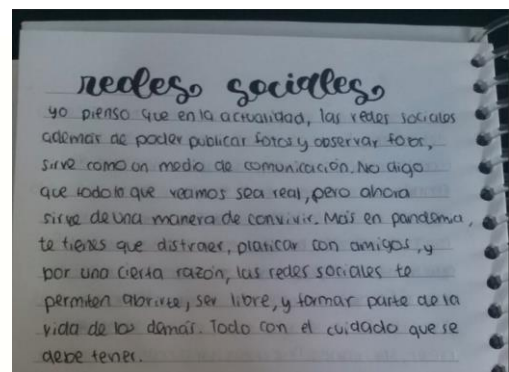 redes sociales
yo pienso que en la actualidad, las redes sociales
ademas de poder publicar fotos y observar fotos,
sirve como un medio de comunicación. No digo
que todo lo que veamos sea real, pero ahora
sirve de una manera de convivir. Mas en pandemia,
te tienes que distraer, platicar con amigos, y
por una cierta razón, las redes sociales te
permiten abrirte, ser libre, y formar parte de la
vida de los demás. Todo con el cuidado que se
debe tener.